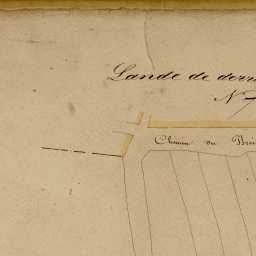 Lande de derri
N
Chemin ou